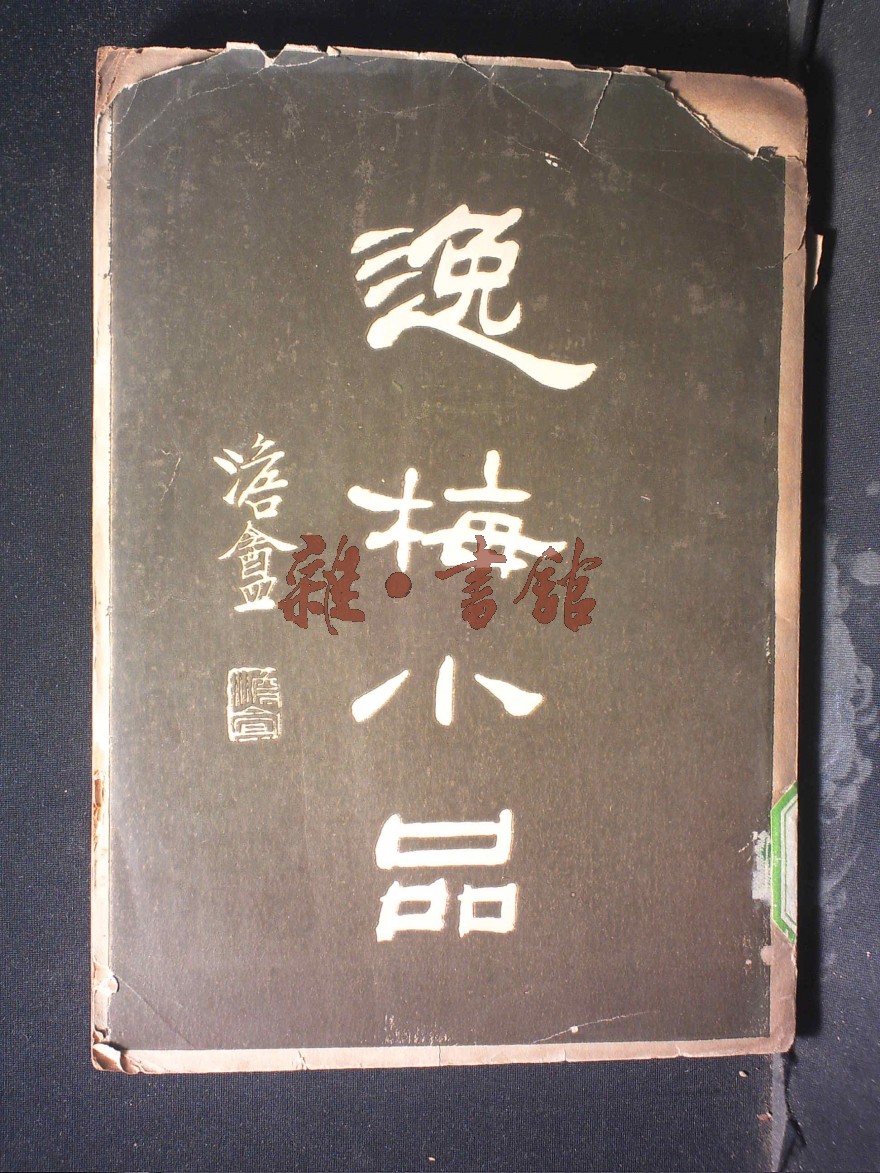 逸梅小品
澹盦
雜·書館